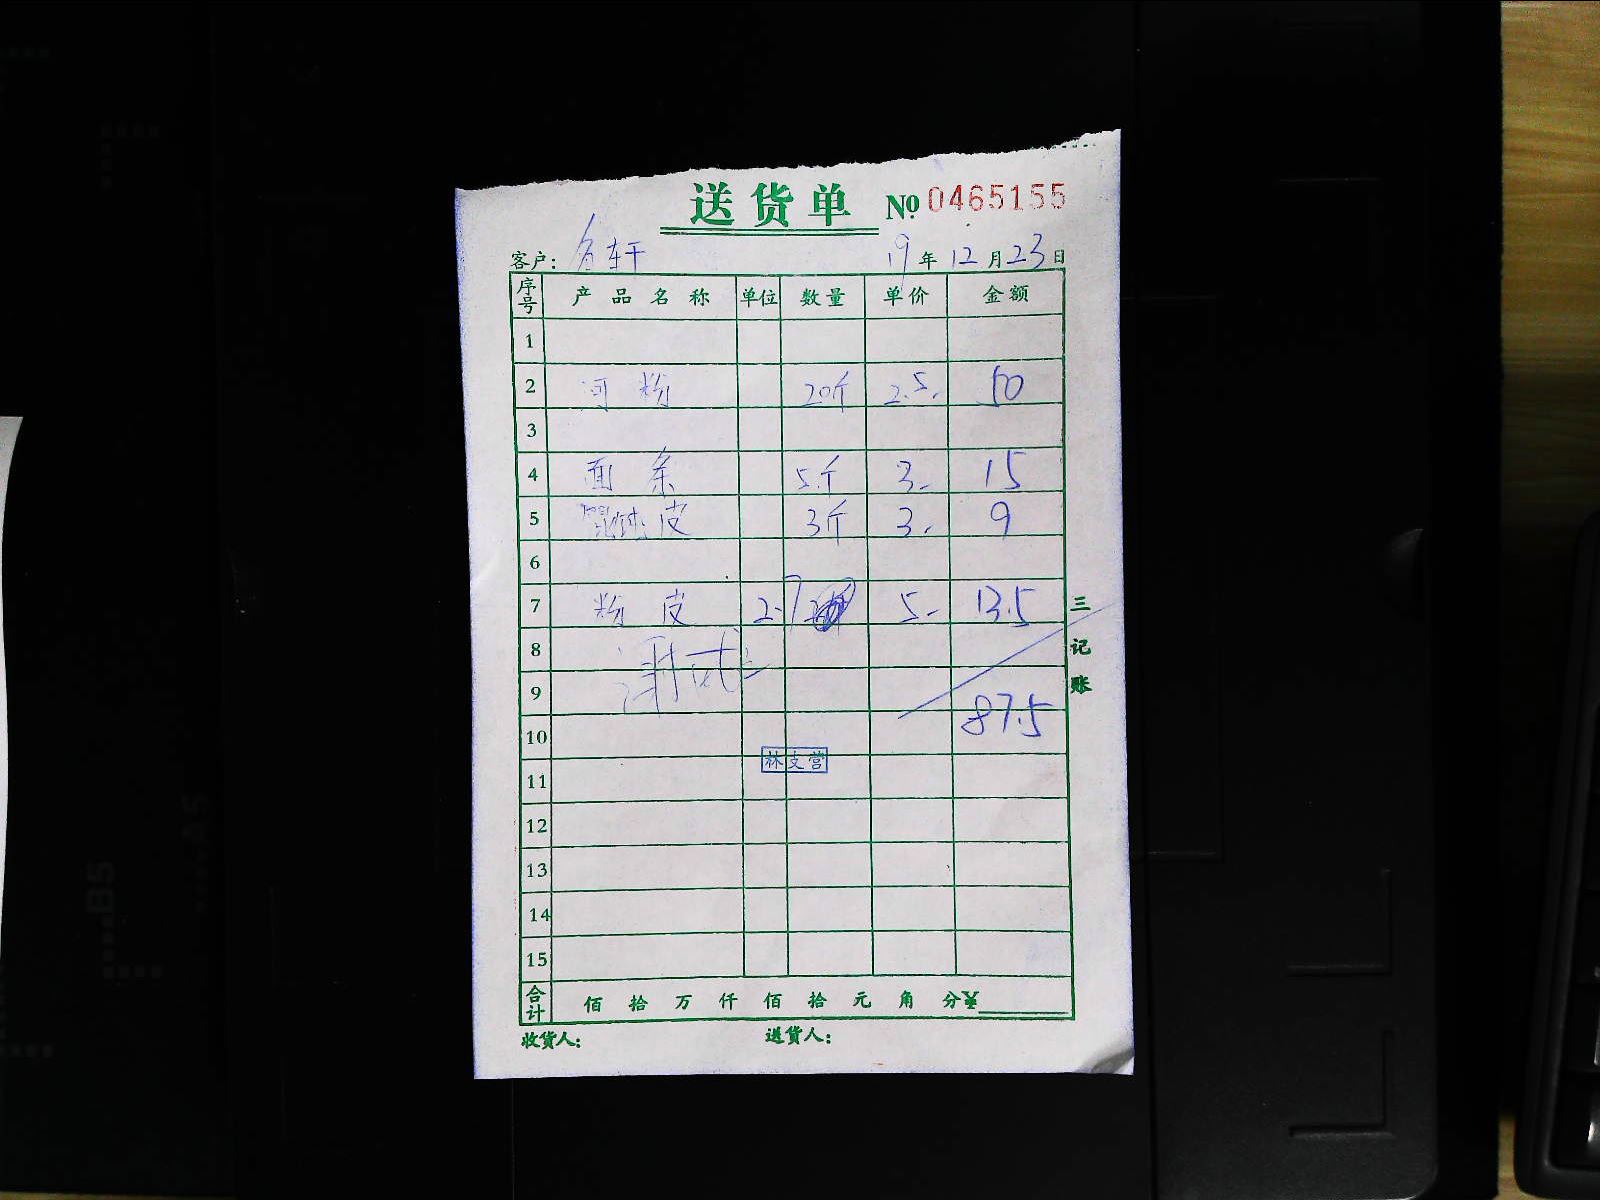 送货单 № 0465155
客户: 名轩 19年12月23日
序号 产品名称 单位 数量 单价 金额
1
2 河粉 20斤 2.5. 50
3
4 面条 5斤 3- 15
5 馄饨皮 3斤 3. 9
6
7 粉皮 2.7 5- 13.5
8
9
87.5
10
林支营
11
12
13
14
15
合计 佰 拾 万 仟 佰 拾 元 角 分¥
收货人: 送货人:
三记账
B5
A5